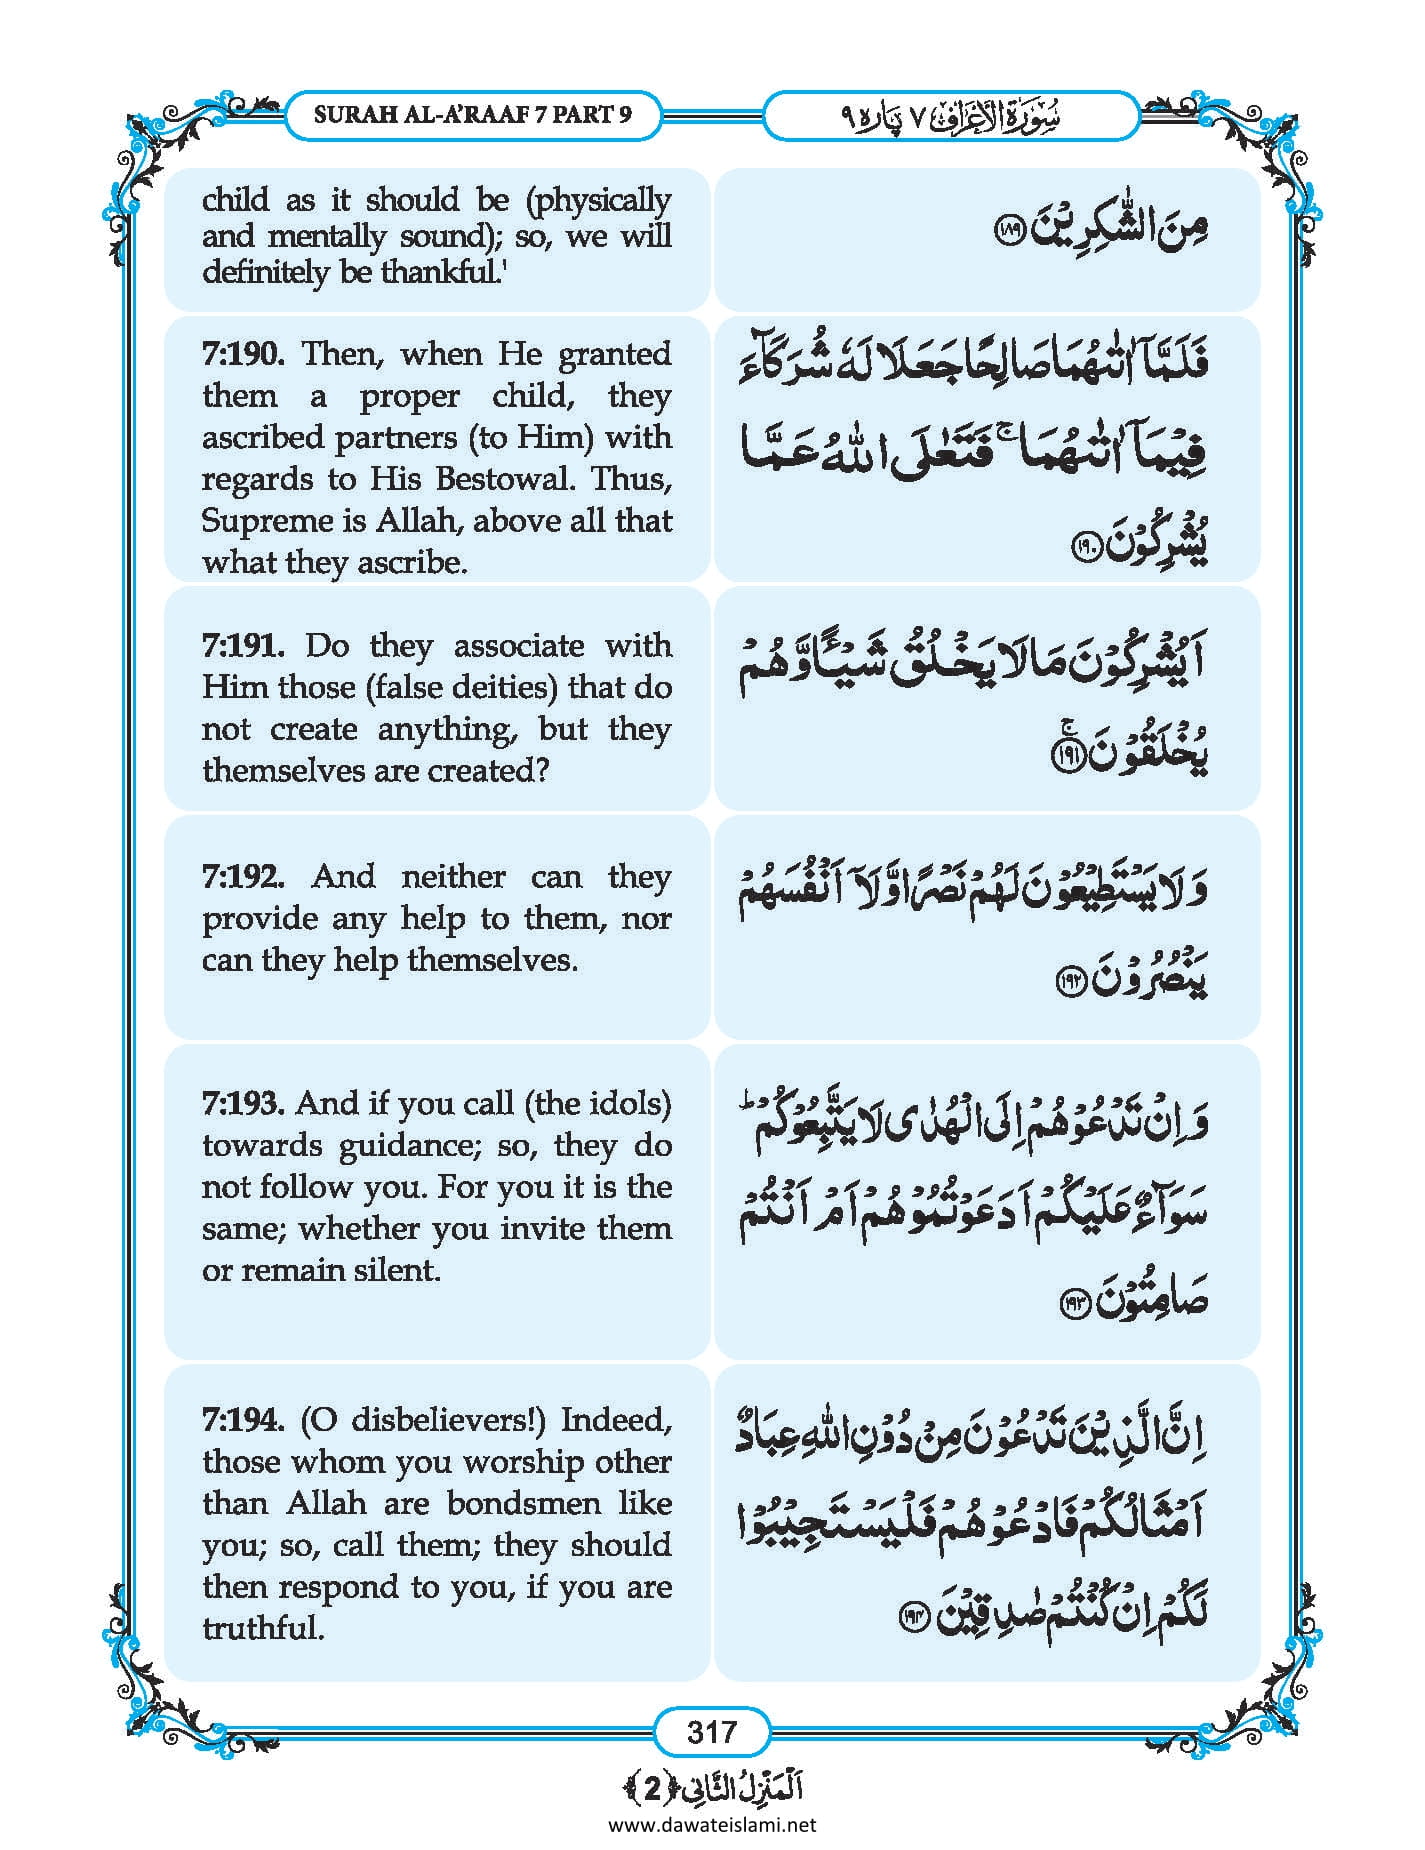 SURAH AL-A'RAAF 7 PART 9
سُوْرَۃُ الْاَعْرَاف ۷ پارہ ۹
child as it should be (physically
and mentally sound); so, we will
definitely be thankful.'
مِنَ الشّٰكِرِیْنَ ﴿۱۸۹﴾
7:190. Then, when He granted
them a proper child, they
ascribed partners (to Him) with
regards to His Bestowal. Thus,
Supreme is Allah, above all that
what they ascribe.
فَلَمَّاۤ اٰتٰىهُمَا صَالِحًا جَعَلَا لَهٗ شُرَكَآءَ
فِیْمَاۤ اٰتٰىهُمَا ۚ فَتَعٰلَى اللّٰهُ عَمَّا
یُشْرِكُوْنَ ﴿۱۹۰﴾
7:191. Do they associate with
Him those (false deities) that do
not create anything, but they
themselves are created?
اَیُشْرِكُوْنَ مَا لَا یَخْلُقُ شَیْـًٔا وَّهُمْ
یُخْلَقُوْنَ ﴿۱۹۱﴾ۚ
7:192. And neither can they
provide any help to them, nor
can they help themselves.
وَلَا یَسْتَطِیْعُوْنَ لَهُمْ نَصْرًا وَّلَاۤ اَنْفُسَهُمْ
یَنْصُرُوْنَ ﴿۱۹۲﴾
7:193. And if you call (the idols)
towards guidance; so, they do
not follow you. For you it is the
same; whether you invite them
or remain silent.
وَاِنْ تَدْعُوْهُمْ اِلَى الْهُدٰى لَا یَتَّبِعُوْكُمْ ؕ
سَوَآءٌ عَلَیْكُمْ اَدَعَوْتُمُوْهُمْ اَمْ اَنْتُمْ
صَامِتُوْنَ ﴿۱۹۳﴾
7:194. (O disbelievers!) Indeed,
those whom you worship other
than Allah are bondsmen like
you; so, call them; they should
then respond to you, if you are
truthful.
اِنَّ الَّذِیْنَ تَدْعُوْنَ مِنْ دُوْنِ اللّٰهِ عِبَادٌ
اَمْثَالُكُمْ فَادْعُوْهُمْ فَلْیَسْتَجِیْبُوْا
لَكُمْ اِنْ كُنْتُمْ صٰدِقِیْنَ ﴿۱۹۴﴾
317
اَلْمَنْزِلُ الثَّانِی ﴿2﴾
www.dawateislami.net